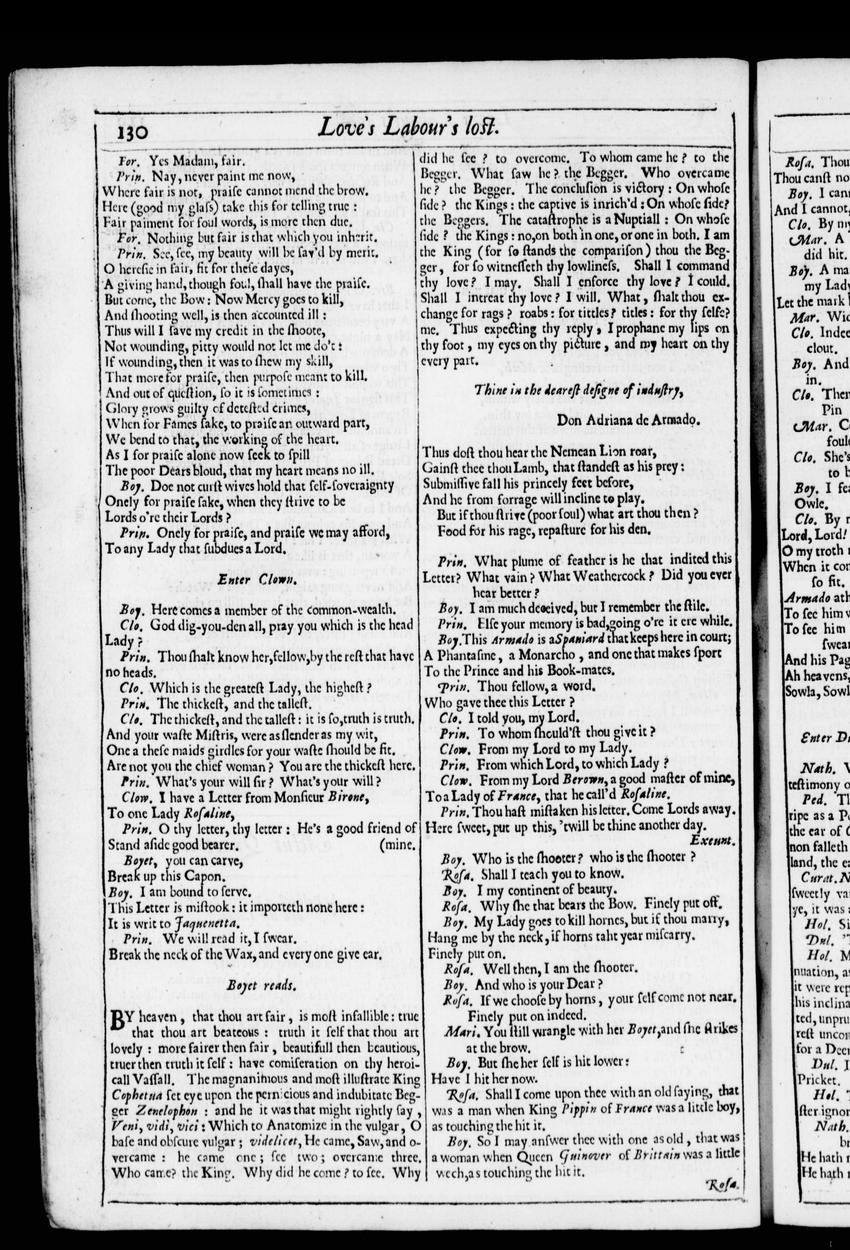 130
Love's Labour's lost.
For. Yes Madam, fair.
Prin. Nay, never paint me now,
Where fair is not, praise cannot mend the brow.
Here (good my glass) take this for telling true :
Fair paiment for foul words, is more then due.
For. Nothing but fair is that which you inherit.
Prin. See, see, my beauty will be sav'd by merit.
O heresie in fair, fit for these dayes,
A giving hand, though foul, shall have the praise.
But come, the Bow : Now Mercy goes to kill,
And shooting well, is then accounted ill :
Thus will I save my credit in the shoote,
Not wounding, pitty would not let me do't :
If wounding, then it was to shew my skill,
That more for praise, then purpose meant to kill.
And out of question, so it is sometimes :
Glory grows guilty of detested crimes,
When for Fames sake, to praise an outward part,
We bend to that, the working of the heart.
As I for praise alone now seek to spill
The poor Dears bloud, that my heart means no ill.
Boy. Doe not curst wives hold that self-soveraignty
Onely for praise sake, when they strive to be
Lords o're their Lords ?
Prin. Onely for praise, and praise we may afford,
To any Lady that subdues a Lord.
Enter Clown.
Boy. Here comes a member of the common-wealth.
Clo. God dig-you-den all, pray you which is the head
Lady ?
Prin. Thou shalt know her, fellow, by the rest that have
no heads.
Clo. Which is the greatest Lady, the highest ?
Prin. The thickest, and the tallest.
Clo. The thickest, and the tallest : it is so, truth is truth.
And your waste Mistris, were as slender as my wit,
One a these maids girdles for your waste should be fit.
Are not you the chief woman ? You are the thickest here.
Prin. What's your will sir ? What's your will ?
Clow. I have a Letter from Monsieur Birone,
To one Lady Rosaline,
Prin. O thy letter, thy letter : He's a good friend of
Stand aside good bearer. (mine.
Boyet, you can carve,
Break up this Capon.
Boy. I am bound to serve.
This Letter is mistook : it importeth none here :
It is writ to Jaquenetta.
Prin. We will read it, I swear.
Break the neck of the Wax, and every one give ear.
Boyet reads.
BY heaven, that thou art fair, is most infallible : true
that thou art beateous : truth it self that thou art
lovely : more fairer then fair, beautifull then beautious,
truer then truth it self : have comiseration on thy heroi-
call Vassall. The magnanimous and most illustrate King
Cophetua set eye upon the pernicious and indubitate Beg-
ger Zenelophon : and he it was that might rightly say,
Veni, vidi, vici : Which to Anatomize in the vulgar, O
base and obscure vulgar ; videlicet, He came, Saw, and o-
vercame : he came one ; see two ; overcame three.
Who came? the King. Why did he come ? to see. Why
did he see ? to overcome. To whom came he ? to the
Begger. What saw he ? the Begger. Who overcame
he ? the Begger. The conclusion is victory : On whose
side ? the Kings : the captive is inrich'd : On whose side?
the Beggers. The catastrophe is a Nuptiall : On whose
side ? the Kings : no, on both in one, or one in both. I am
the King (for so stands the comparison) thou the Beg-
ger, for so witnesseth thy lowliness. Shall I command
thy love? I may. Shall I enforce thy love ? I could.
Shall I intreat thy love ? I will. What, shalt thou ex-
change for rags ? roabs : for tittles? titles : for thy selfe?
me. Thus expecting thy reply, I prophane my lips on
thy foot, my eyes on thy picture, and my heart on thy
every part.
Thine in the dearest designe of industry,
Don Adriana de Armado.
Thus dost thou hear the Nemean Lion roar,
Gainst thee thou Lamb, that standest as his prey :
Submissive fall his princely feet before,
And he from forrage will incline to play.
But if thou strive (poor soul) what art thou then ?
Food for his rage, repasture for his den.
Prin. What plume of feather is he that indited this
Letter? What vain ? What Weathercock ? Did you ever
hear better ?
Boy. I am much deceived, but I remember the stile.
Prin. Else your memory is bad, going o're it ere while.
Boy. This Armado is a Spaniard that keeps here in court;
A Phantasme, a Monarcho, and one that makes sport
To the Prince and his Book-mates.
Prin. Thou fellow, a word.
Who gave thee this Letter ?
Clo. I told you, my Lord.
Prin. To whom should'st thou give it ?
Clow. From my Lord to my Lady.
Prin. From which Lord, to which Lady ?
Clow. From my Lord Berown, a good master of mine,
To a Lady of France, that he call'd Rosaline.
Prin. Thou hast mistaken his letter. Come Lords away.
Here sweet, put up this, 'twill be thine another day.
Exeunt.
Boy. Who is the shooter ? who is the shooter ?
Rosa. Shall I teach you to know.
Boy. I my continent of beauty.
Rosa. Why she that bears the Bow. Finely put off.
Boy. My Lady goes to kill hornes, but if thou marry,
Hang me by the neck, if horns taht year miscarry.
Finely put on.
Rosa. Well then, I am the shooter.
Boy. And who is your Dear ?
Rosa. If we choose by horns, your self come not near.
Finely put on indeed.
Mari. You still wrangle with her Boyet, and she strikes
at the brow.
Boy. But she her self is hit lower :
Have I hit her now.
Rosa. Shall I come upon thee with an old saying, that
was a man when King Pippin of France was a little boy,
as touching the hit it.
Boy. So I may answer thee with one as old, that was
a woman when Queen Guinover of Brittain was a little
wech, as touching the hit it.
Rosa.
Rosa. Thou
Thou canst no
Boy. I can
And I cannot,
Clo. By my
Mar. A
did hit.
Boy. A ma
my Lady
Let the mark
Mar. Wid
Clo. Indee
clout.
Boy. And
in.
Clo. Then
Pin
Mar. Co
foul
Clo. She's
to b
Boy. I fea
Owle.
Clo. By m
Lord, Lord!
O my troth
When it com
so fit.
Armado ath
To see him
To see him
swear
And his Pag
Ah heavens,
Sowla, Sowl
Enter D
Nath. V
testimony o
Ped. Th
ripe as a Po
the ear of C
non falleth
land, the ea
Curat. N
sweetly va
ye, it was
Hol. Si
Dul. 'T
Hol. M
nuation, a
it were rep
his inclina
ted, unpru
rest uncon
for a Deer
Dul. I
Pricket.
Hol. T
ster ignor
Nath.
br
He hath n
He hath